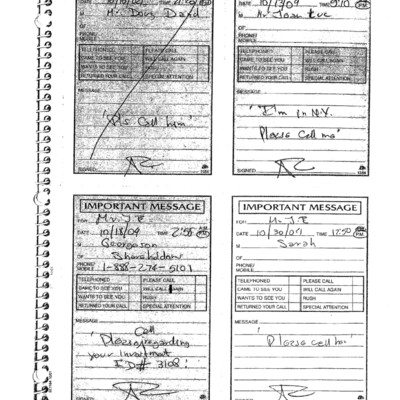 DATE 10/10/09 TIME
M
Mr. Don
PHONE/
MOBILE
TELEPHONED PLEASE CALL
CAME TO SEE YOU WILL CALL AGAIN
WANTS TO SEE YOU RUSH
RETURNED YOUR CALL SPECIAL ATTENTION
MESSAGE
Call him"
SIGNED
DATE TIME
M
Mr.
PHONE/
MOBILE
TELEPHONED PLEASE CALL
CAME TO SEE YOU WILL CALL AGAIN
WANTS TO SEE YOU RUSH
RETURNED YOUR CALL SPECIAL ATTENTION
MESSAGE
"I'm in N.Y.
Please call me"
SIGNED
IMPORTANT MESSAGE
FOR Mr. J.E
DATE 10/18/09 TIME 2:56 PM
M Georgeson
OF Shareholder
PHONE/
MOBILE 1-888-274-5101
TELEPHONED PLEASE CALL
CAME TO SEE YOU WILL CALL AGAIN
WANTS TO SEE YOU RUSH
RETURNED YOUR CALL SPECIAL ATTENTION
MESSAGE
Call
Please regarding
your investment
ID# 3108!
SIGNED
IMPORTANT MESSAGE
FOR Mr. J.E
DATE TIME
M Sarah
OF
PHONE/
MOBILE
TELEPHONED PLEASE CALL
CAME TO SEE YOU WILL CALL AGAIN
WANTS TO SEE YOU RUSH
RETURNED YOUR CALL SPECIAL ATTENTION
MESSAGE
"Please call me"
SIGNED